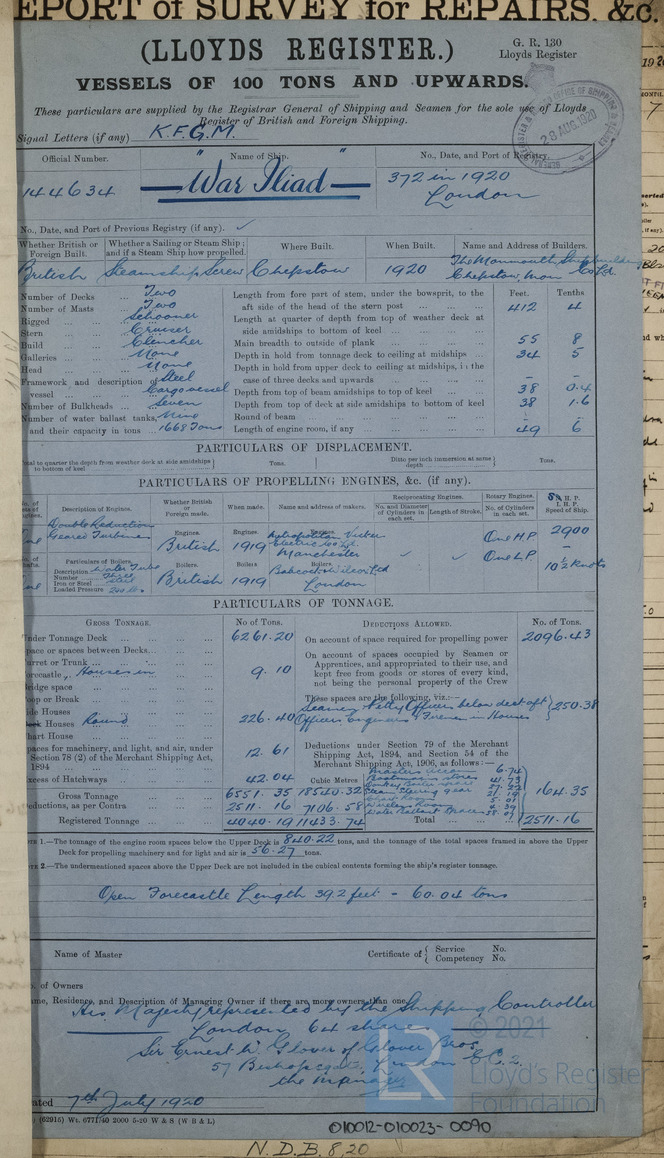 EPORT of SURVEY for REPAIRS, &c.
(LLOYDS REGISTER.)
G. R. 130
Lloyds Register
VESSELS OF 100 TONS AND UPWARDS.
These particulars are supplied by the Registrar General of Shipping and Seamen for the sole use of Lloyds
Register of British and Foreign Shipping.
28 AUG. 1920
Signal Letters (if any) K.F.G.M.
Official Number. Name of Ship. No., Date, and Port of Registry.
144634 "War Iliad" 372 in 1920
London
No., Date, and Port of Previous Registry (if any).
Whether British or Foreign Built. Whether a Sailing or Steam Ship; and if a Steam Ship how propelled. Where Built. When Built. Name and Address of Builders.
British Steamship Screw Chepstow 1920 The Monmouth Shipbuilding Co Ld.
Chepstow, Mon
Number of Decks ... Two
Number of Masts ... Two
Rigged ... Schooner
Stern ... Cruiser
Build ... Clencher
Galleries ... None
Head ... None
Framework and description of vessel ... Steel Cargo vessel
Number of Bulkheads ... Seven
Number of water ballast tanks, Nine
and their capacity in tons ... 1668 Tons
Feet. Tenths
Length from fore part of stem, under the bowsprit, to the
aft side of the head of the stern post ... 412 4
Length at quarter of depth from top of weather deck at
side amidships to bottom of keel ...
Main breadth to outside of plank ... 55 8
Depth in hold from tonnage deck to ceiling at midships ... 34 5
Depth in hold from upper deck to ceiling at midships, in the
case of three decks and upwards ... – –
Depth from top of beam amidships to top of keel ... 38 0.4
Depth from top of deck at side amidships to bottom of keel 38 1.6
Round of beam ... – –
Length of engine room, if any ... 49 6
PARTICULARS OF DISPLACEMENT.
tal to quarter the depth from weather deck at side amidships to bottom of keel Tons. Ditto per inch immersion at same depth Tons.
PARTICULARS OF PROPELLING ENGINES, &c. (if any).
Description of Engines. Whether British or Foreign made. When made. Name and address of makers. Reciprocating Engines. Rotary Engines. H. P.
No. and Diameter of Cylinders in each set. Length of Stroke. No. of Cylinders in each set. I. H. P. Speed of Ship.
Double Reduction
Geared Turbines
Engines. British Engines. 1919 Engines. Metropolitan Vickers
Electric Co Ld.
Manchester
One H.P. 2900
One L.P. –
10½ knots
Particulars of Boilers.
Description Water Tube
Number Three
Iron or Steel Steel
Loaded Pressure 200 lbs
Boilers. British Boilers 1919 Boilers. Babcock & Wilcox Ltd
London
PARTICULARS OF TONNAGE.
GROSS TONNAGE. No of Tons. DEDUCTIONS ALLOWED. No. of Tons.
Under Tonnage Deck ... 6261.20
On account of space required for propelling power 2096.43
Space or spaces between Decks...
Turret or Trunk ...
Forecastle, Houses in 9.10
Bridge space ...
Poop or Break ...
Side Houses ...
Deck Houses Round 226.40
Chart House ...
On account of spaces occupied by Seamen or
Apprentices, and appropriated to their use, and
kept free from goods or stores of every kind,
not being the personal property of the Crew
These spaces are the following, viz.:—
Seamen & Petty Officers below deck aft
Officers Engineers & Firemen in Houses 250.38
Spaces for machinery, and light, and air, under
Section 78 (2) of the Merchant Shipping Act,
1894 ... 12.61
Excess of Hatchways ... 42.04
Deductions under Section 79 of the Merchant
Shipping Act, 1894, and Section 54 of the
Merchant Shipping Act, 1906, as follows:—
Cubic Metres
Gross Tonnage 6551.35 18540.32
Deductions, as per Contra 2511.16 7106.58
Registered Tonnage 4040.19 11433.74
164.35
Total ... 2511.16
NOTE 1.—The tonnage of the engine room spaces below the Upper Deck is 840.22 tons, and the tonnage of the total spaces framed in above the Upper
Deck for propelling machinery and for light and air is 56.27 tons.
NOTE 2.—The undermentioned spaces above the Upper Deck are not included in the cubical contents forming the ship's register tonnage.
Open Forecastle Length 39.2 feet – 60.04 tons
Name of Master Certificate of { Service No.
Competency No.
. of Owners
me, Residence, and Description of Managing Owner if there are more owners than one.
His Majesty represented by the Shipping Controller
London 64 shares
Sir Ernest W. Glover of Glover Bros.
57 Bishopsgate, London E.C.2.
the Manager
ated 7th July 1920
(62915) Wt. 6771/40 2000 5-20 W & S (W B & L)
LR © 2021
Lloyd's Register
Foundation
010012-010023-0090
N.D.B. 8,20